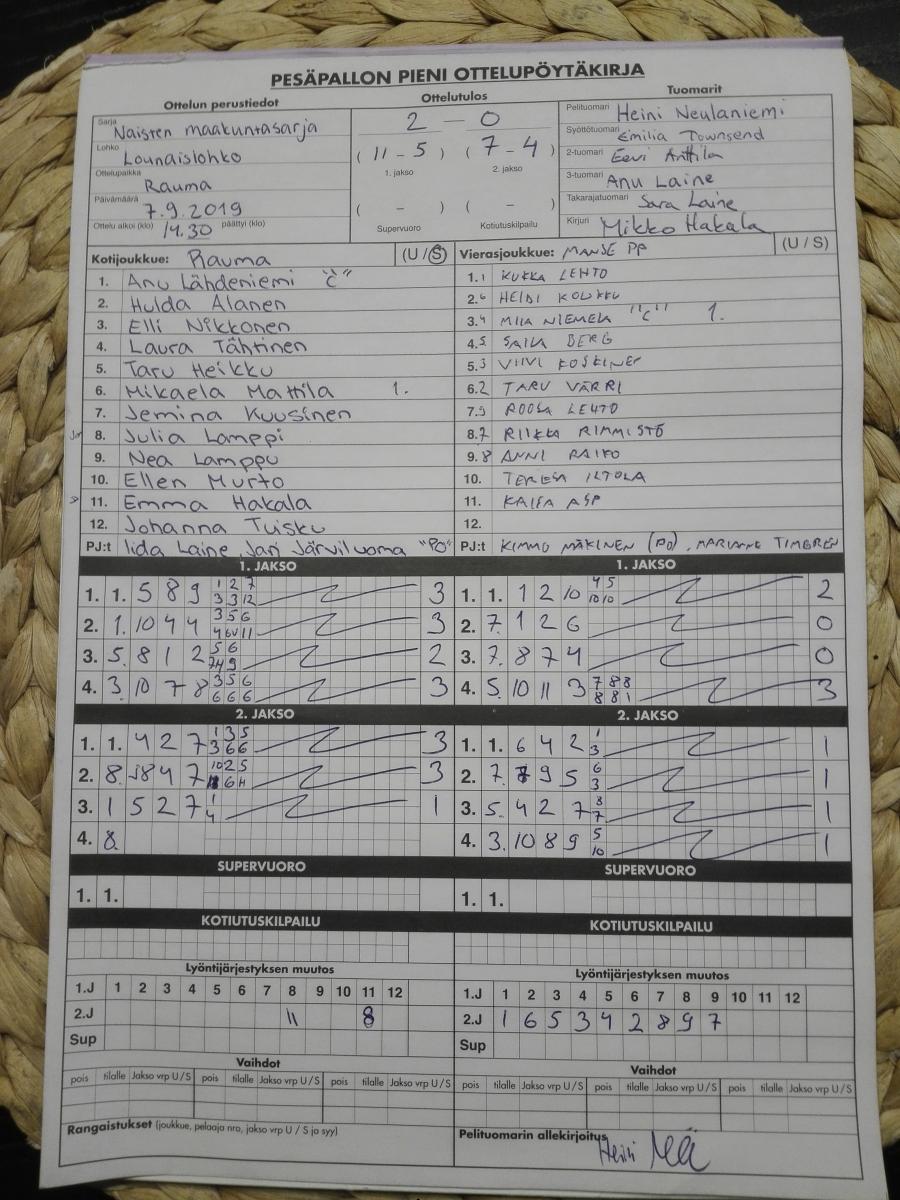 PESÄPALLON PIENI OTTELUPÖYTÄKIRJA
Ottelun perustiedot
Sarja Naisten maakuntasarja
Lohko Lounaislohko
Ottelupaikka Rauma
Päivämäärä 7.9.2019
Ottelu alkoi (klo) 14.30 päättyi (klo)
Ottelutulos
2 - 0
( 11 - 5 ) ( 7 - 4 )
1. jakso 2. jakso
( - ) ( - )
Supervuoro Kotiutuskilpailu
Tuomarit
Pelituomari Heini Neulaniemi
Syöttötuomari Emilia Townsend
2-tuomari Eevi Anttila
3-tuomari Anu Laine
Takarajatuomari Sara Laine
Kirjuri Mikko Hakala
Kotijoukkue: Rauma (U / S)
1. Anu Lähdeniemi "C"
2. Hulda Alanen
3. Elli Nikkonen
4. Laura Tähtinen
5. Taru Heikku
6. Mikaela Mattila 1.
7. Jemina Kuusinen
8. Julia Lamppi
9. Nea Lamppu
10. Ellen Murto
11. Emma Hakala
12. Johanna Tuisku
PJ:t Iida Laine, Jari Järviluoma "PO"
Vierasjoukkue: MANSE PP (U / S)
1. 1 KUKKA LEHTO
2. 6 HEIDI KOUKKU
3. 4 MIIA NIEMELÄ "C" 1.
4. 5 SAILA BERG
5. 3 VIIVI KOSKINEN
6. 2 TARU VÄRRI
7. 9 ROOSA LEHTO
8. 7 RIIKKA RIMMISTÖ
9. 8 ANNI RAIKO
10. TERESA ILTOLA
11. KAISA ASP
12.
PJ:t KIMMO MÄKINEN (PO), MARIANNE TIMGREN
1. JAKSO
1. 1. 5 8 9 1 2 7 3
3 3 12
2. 1. 10 4 4 3 5 6 3
3. 5. 8 1 2 5 6 2
4. 3. 10 7 8 3 5 6 3
6 6 6
1. JAKSO
1. 1. 1 2 10 4 5 2
10 10
2. 7. 1 2 6 0
3. 7. 8 7 4 0
4. 5. 10 11 3 7 8 8 3
8 8 1
2. JAKSO
1. 1. 4 2 7 1 3 5 3
3 6 6
2. 8. 8 4 7 10 2 5 3
3. 1 5 2 7 1 1
4
4. 8.
2. JAKSO
1. 1. 6 4 2 1 1
3
2. 7. 9 5 6 1
3
3. 5. 4 2 7 8 1
7
4. 3. 10 8 9 5 1
10
SUPERVUORO
1. 1.
SUPERVUORO
1. 1.
KOTIUTUSKILPAILU
KOTIUTUSKILPAILU
Lyöntijärjestyksen muutos
1.J 1 2 3 4 5 6 7 8 9 10 11 12
2.J 11 8
Sup
Lyöntijärjestyksen muutos
1.J 1 2 3 4 5 6 7 8 9 10 11 12
2.J 1 6 5 3 4 2 8 9 7
Sup
Vaihdot
pois tilalle Jakso vrp U / S pois tilalle Jakso vrp U / S pois tilalle Jakso vrp U / S
Vaihdot
pois tilalle Jakso vrp U / S pois tilalle Jakso vrp U / S pois tilalle Jakso vrp U / S
Rangaistukset (joukkue, pelaaja nro, jakso vrp U / S ja syy)
Pelituomarin allekirjoitus Heini